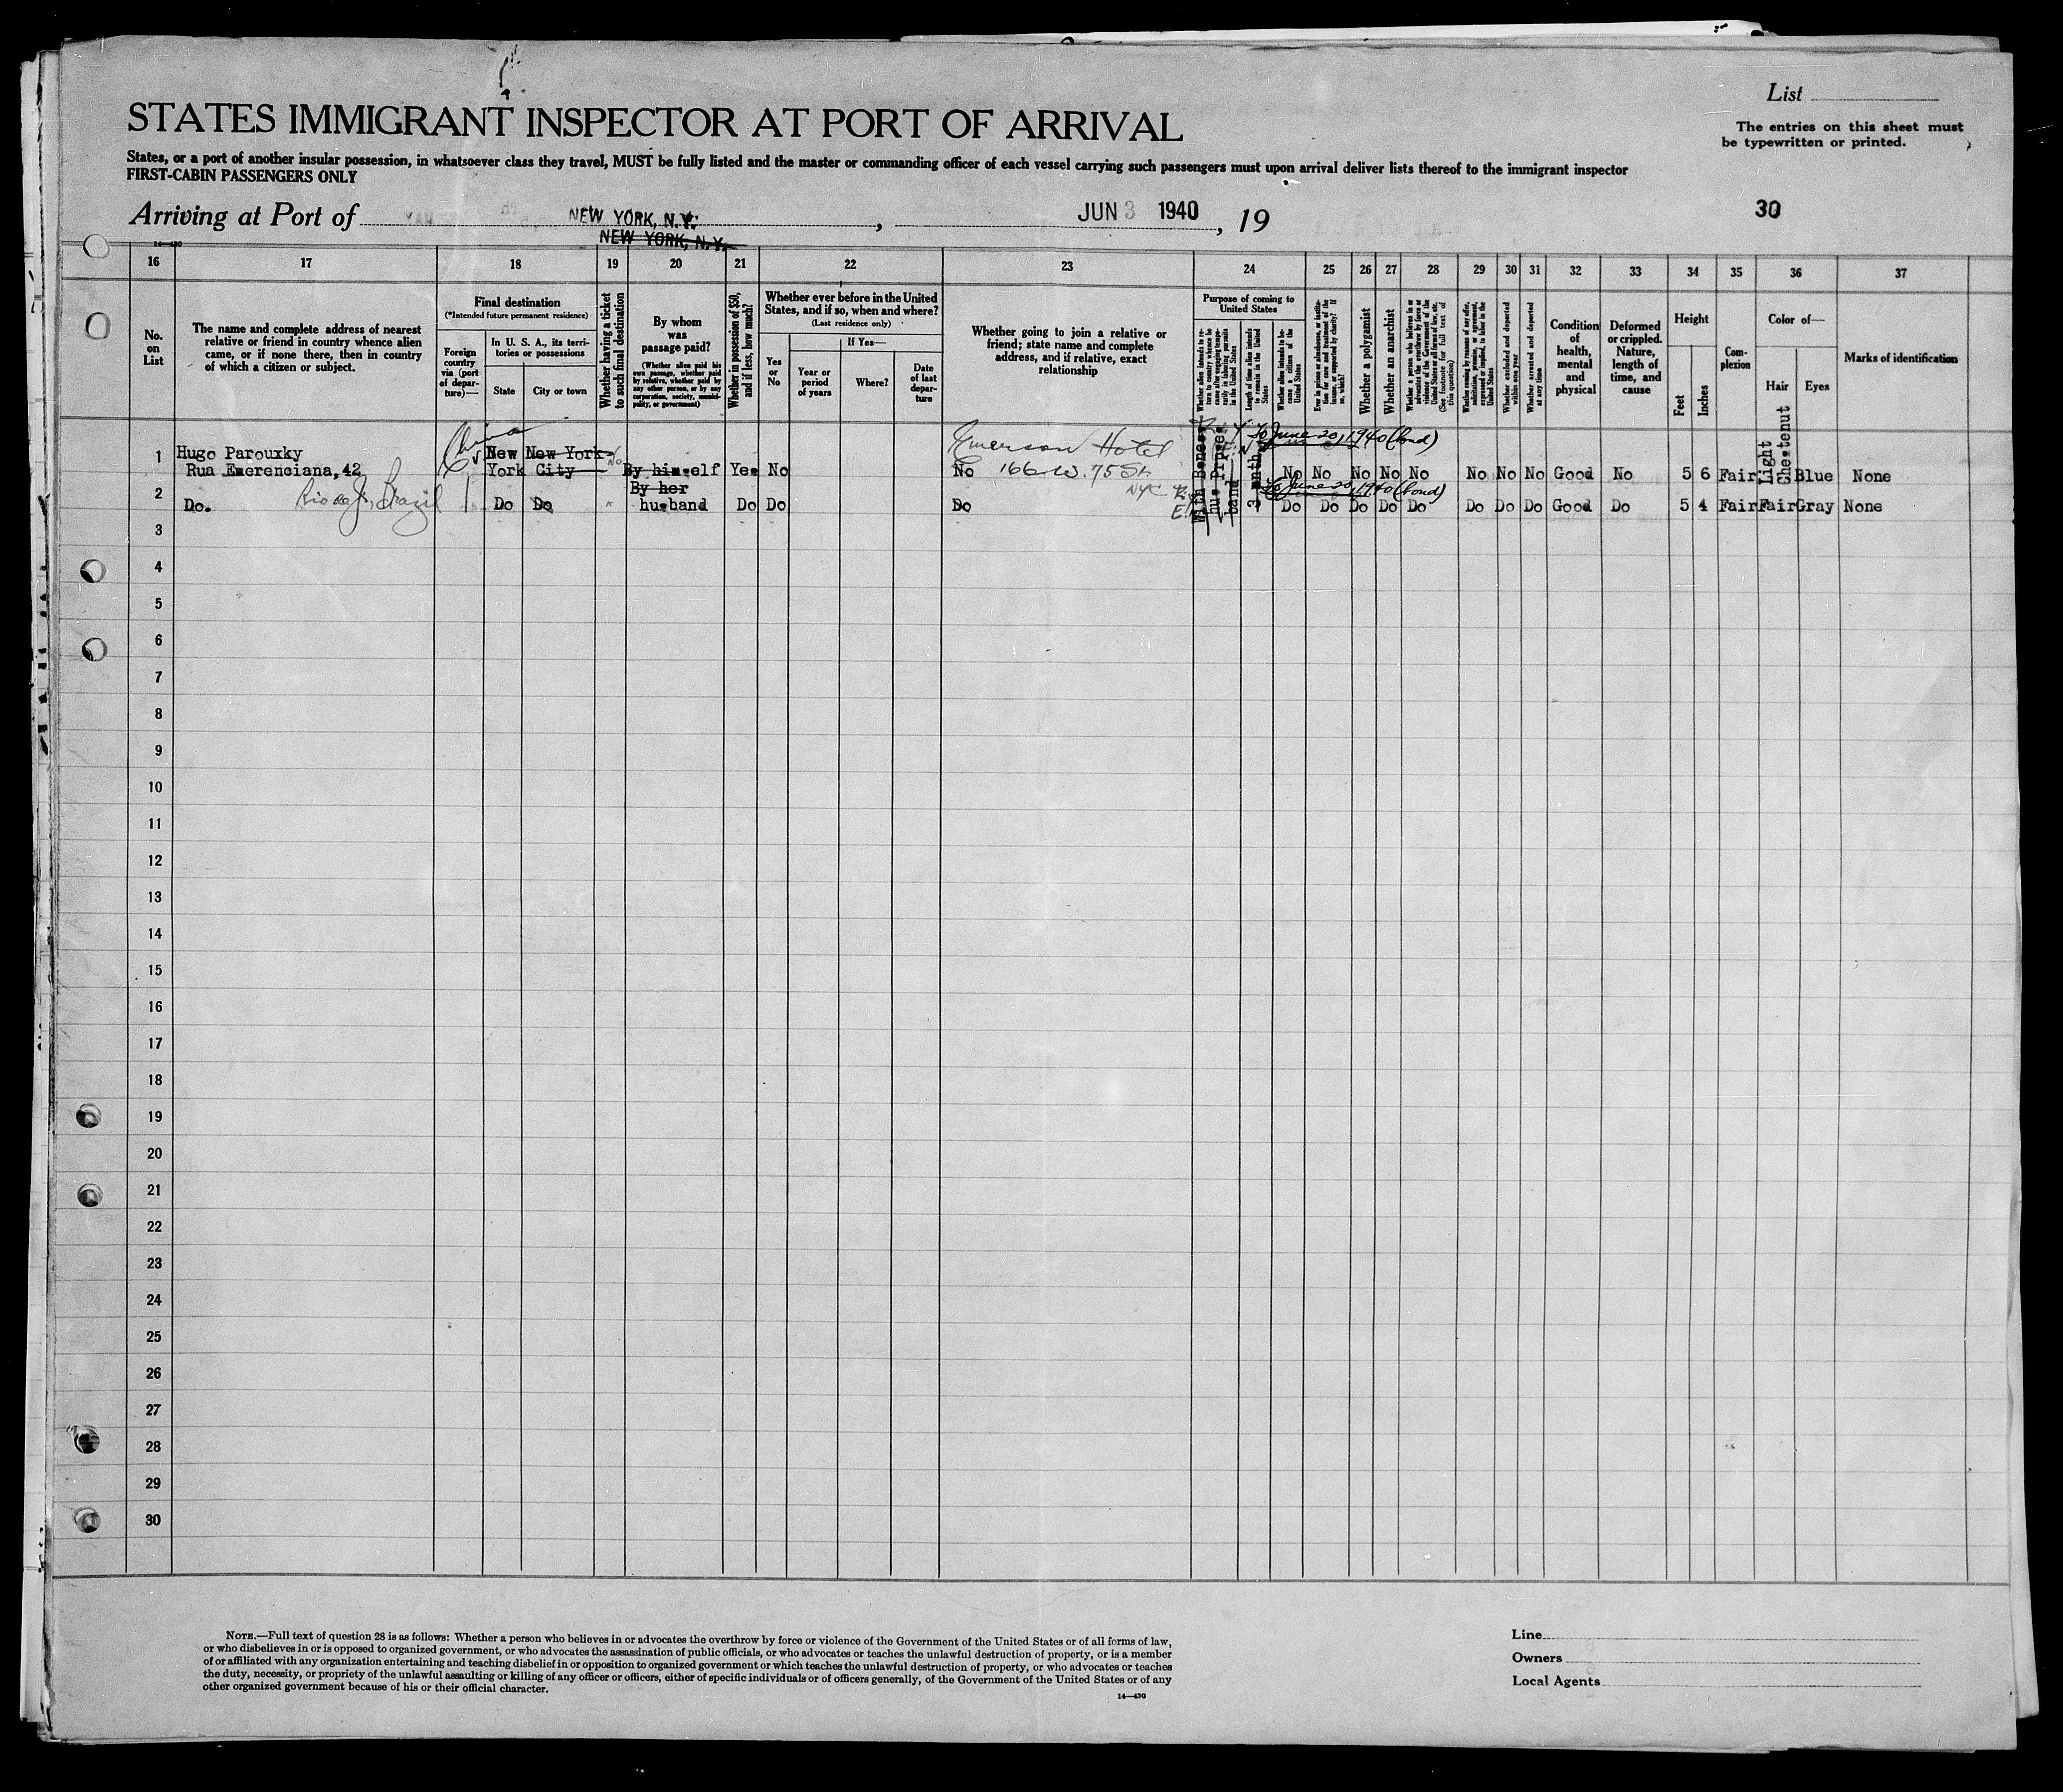 List
STATES IMMIGRANT INSPECTOR AT PORT OF ARRIVAL
The entries on this sheet must
be typewritten or printed.
States, or a port of another insular possession, in whatsoever class they travel, MUST be fully listed and the master or commanding officer of each vessel carrying such passengers must upon arrival deliver lists thereof to the immigrant inspector
FIRST-CABIN PASSENGERS ONLY
Arriving at Port of NEW YORK, N.Y. , JUN 3 1940 , 19
30
NEW YORK, N.Y.
14—430
16 17 18 19 20 21 22 23 24 25 26 27 28 29 30 31 32 33 34 35 36 37
No.
on
List
The name and complete address of nearest
relative or friend in country whence alien
came, or if none there, then in country
of which a citizen or subject.
Final destination
(*Intended future permanent residence)
Foreign
country
via (port
of depar-
ture)—
In U. S. A., its terri-
tories or possessions
State
City or town
Whether having a ticket
to such final destination
By whom
was
passage paid?
(Whether alien paid his
own passage, whether paid
by relative, whether paid by
any other person, or by any
corporation, society, munici-
pality, or government)
Whether in possession of $50,
and if less, how much?
Whether ever before in the United
States, and if so, when and where?
(Last residence only)
Yes
or
No
If Yes—
Year or
period
of years
Where?
Date
of last
depar-
ture
Whether going to join a relative or
friend; state name and complete
address, and if relative, exact
relationship
Purpose of coming to
United States
Whether alien intends to re-
turn to country whence he
came after engaging tempo-
rarily in laboring pursuits
in the United States
Length of time alien intends
to remain in the United
States
Whether alien intends to be-
come a citizen of the
United States
Ever in prison or almshouse, or institu-
tion for care and treatment of the
insane, or supported by charity? If
so, which?
Whether a polygamist
Whether an anarchist
Whether a person who believes in or
advocates the overthrow by force or
violence of the Government of the
United States or all forms of law, etc.
(See footnote for full text of
this question)
Whether coming by reasons of any offer,
solicitation, promise, or agreement,
expressed or implied, to labor in the
United States
Whether excluded and deported
within one year
Whether arrested and deported
at any time
Condition
of
health,
mental
and
physical
Deformed
or crippled.
Nature,
length of
time, and
cause
Height
Feet
Inches
Com-
plexion
Color of—
Hair
Eyes
Marks of identification
China
Emerson Hotel
To June 20, 1940 (bond)
1 Hugo Parouxky New New York
No
Rua Emerenciana,42 York City By himself Yes No No 166 W. 75 St. No No No No No No No No Good No 5 6 Fair Light Chestenut Blue None
NYC
2 Rio de J., Brazil By her To June 20, 1940 (bond)
Do. Do Do husband Do Do Do Do Do Do Do Do Do Do Do Good Do 5 4 Fair Fair Gray None
3
4
5
6
7
8
9
10
11
12
13
14
15
16
17
18
19
20
21
22
23
24
25
26
27
28
29
30
NOTE.—Full text of question 28 is as follows: Whether a person who believes in or advocates the overthrow by force or violence of the Government of the United States or of all forms of law,
or who disbelieves in or is opposed to organized government, or who advocates the assassination of public officials, or who advocates or teaches the unlawful destruction of property, or is a member
of or affiliated with any organization entertaining and teaching disbelief in or opposition to organized government or which teaches the unlawful destruction of property, or who advocates or teaches
the duty, necessity, or propriety of the unlawful assaulting or killing of any officer or officers, either of specific individuals or of officers generally, of the Government of the United States or of any
other organized government because of his or their official character.
14—430
Line
Owners
Local Agents